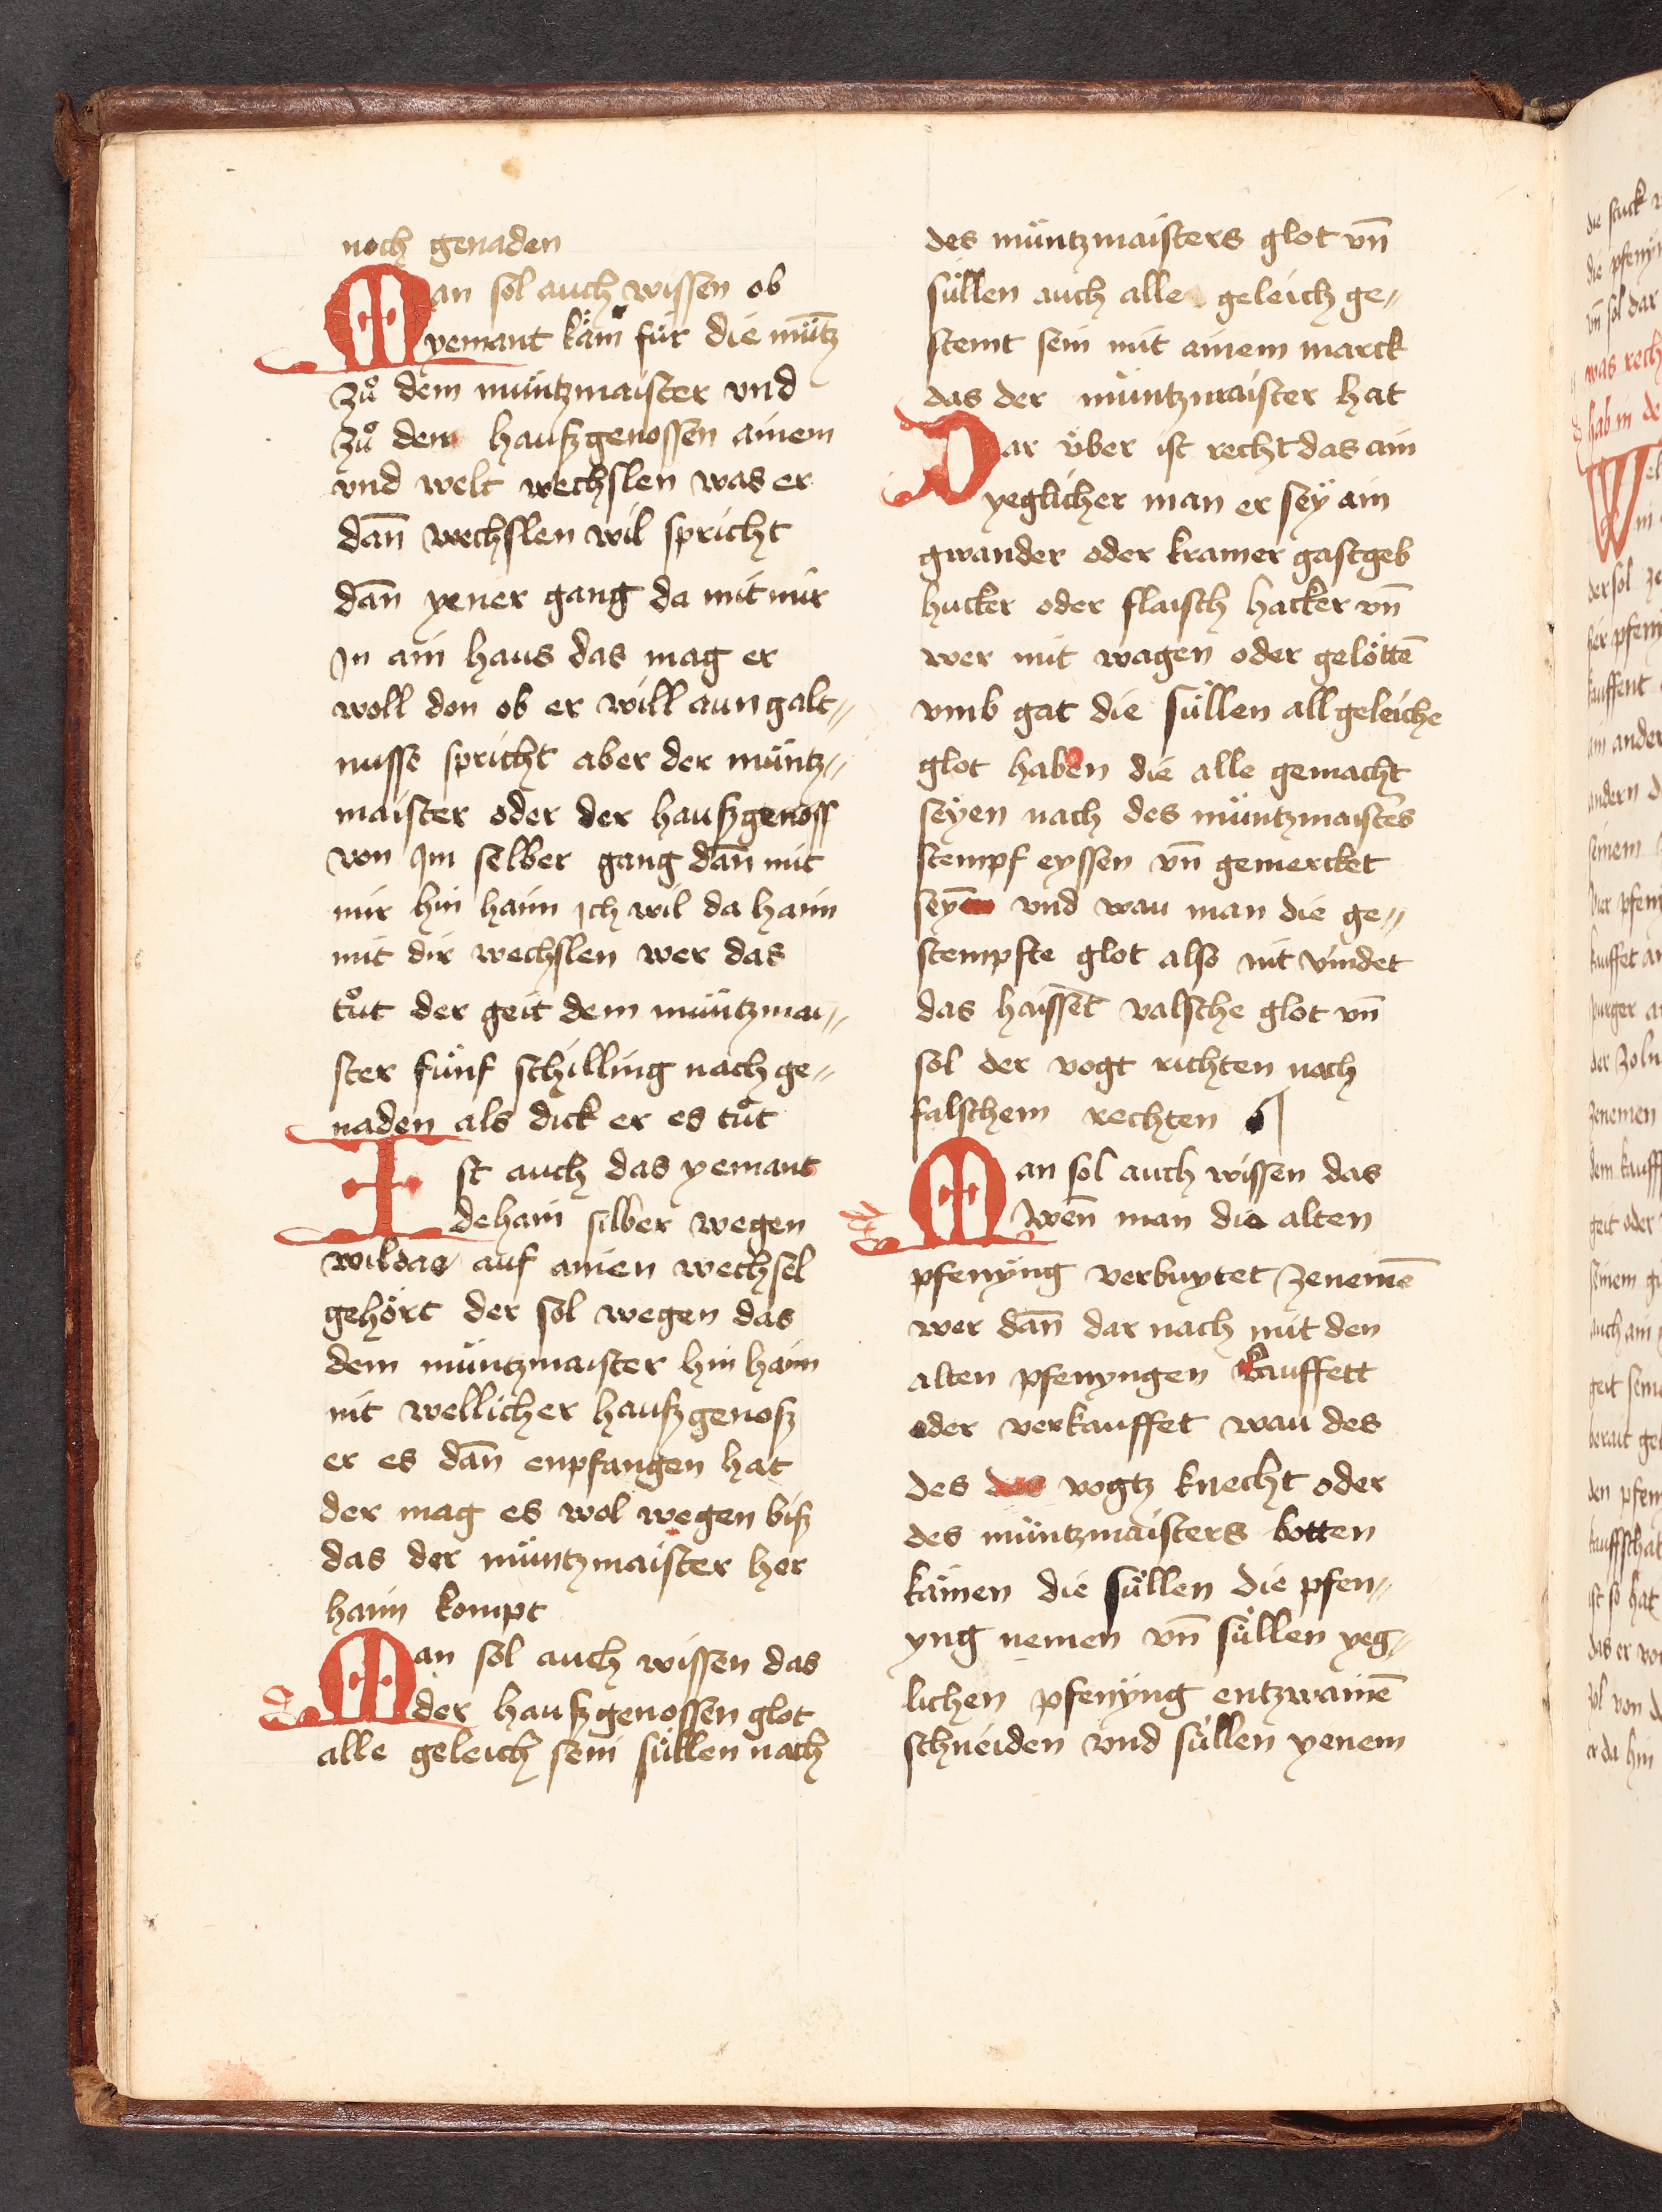 noch genaden
Man sol auch wissen ob
yemant käm für die müntz
zů dem müntzmaister vnd
zů dem haußgenossen ainem
vnd welt wechslen was er
dan̄ wechslen wil spricht
dan̄ yener gang da mit mir
In ain haus das mag er
woll don ob er will aun galt„
nusse spricht aber der müntz„
maister oder der haußgenoss
von Im selber gang dan̄ mit
mir hin haim Ich wil da haim
mit dir wechslen wer das
tůt der geit dem müntzmai„
ster fünf schilling nach ge„
naden als dick er es tůt
Ist auch das yemant
dehain silber wegen
wil das auf ainen wechsel
gehört der sol wegen das
dem müntzmaister hin haim
nit wellicher haußgenoß
er es dan̄ enpfangen hat
der mag es wol wegen biß
das der müntzmaister her
haim kompt
Man sol auch wissen das
der haußgenossen glot
alle geleich sein süllen nach
des müntzmaisters glot vn̄
süllen auch alle geleich ge„
stemt sein mit ainem marck
das der müntzmaister hat
Dar über ist recht das ain
yeglicher man er sey ain
gwander oder kramer gastgeb
hucker oder flaisch hacker vn̄
wer mit wagen oder gelöttē
vmb gat die süllen all geleiche
glot haben die alle gemacht
seyen nach des müntzmaisters
stempf eyssen vn̄ gemercket
seyen vnd wau man die ge„
stempfte glot also nit vindet
das haisset valsche glot vn̄
sol der vogt richten noch
falschem rechten
Man sol auch wissen das
wen̄ man die alten
pfenyng verbuytet zenemē
wer dan̄ dar nach mit den
alten pfenyngen kauffett
oder verkauffet wau des
des vogtz knecht oder
des müntzmaisters botten
kämen die süllen die pfen„
yng nemen vn̄ süllen yeg„
lichen pfenyng entzwaine̅
schneiden vnd süllen yenem